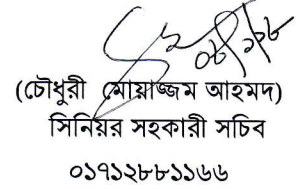 ০৮/১/১৮
(চৌধুরী মোয়াজ্জম আহমদ)
সিনিয়র সহকারী সচিব
০১৭১২৮৮১১৬৬